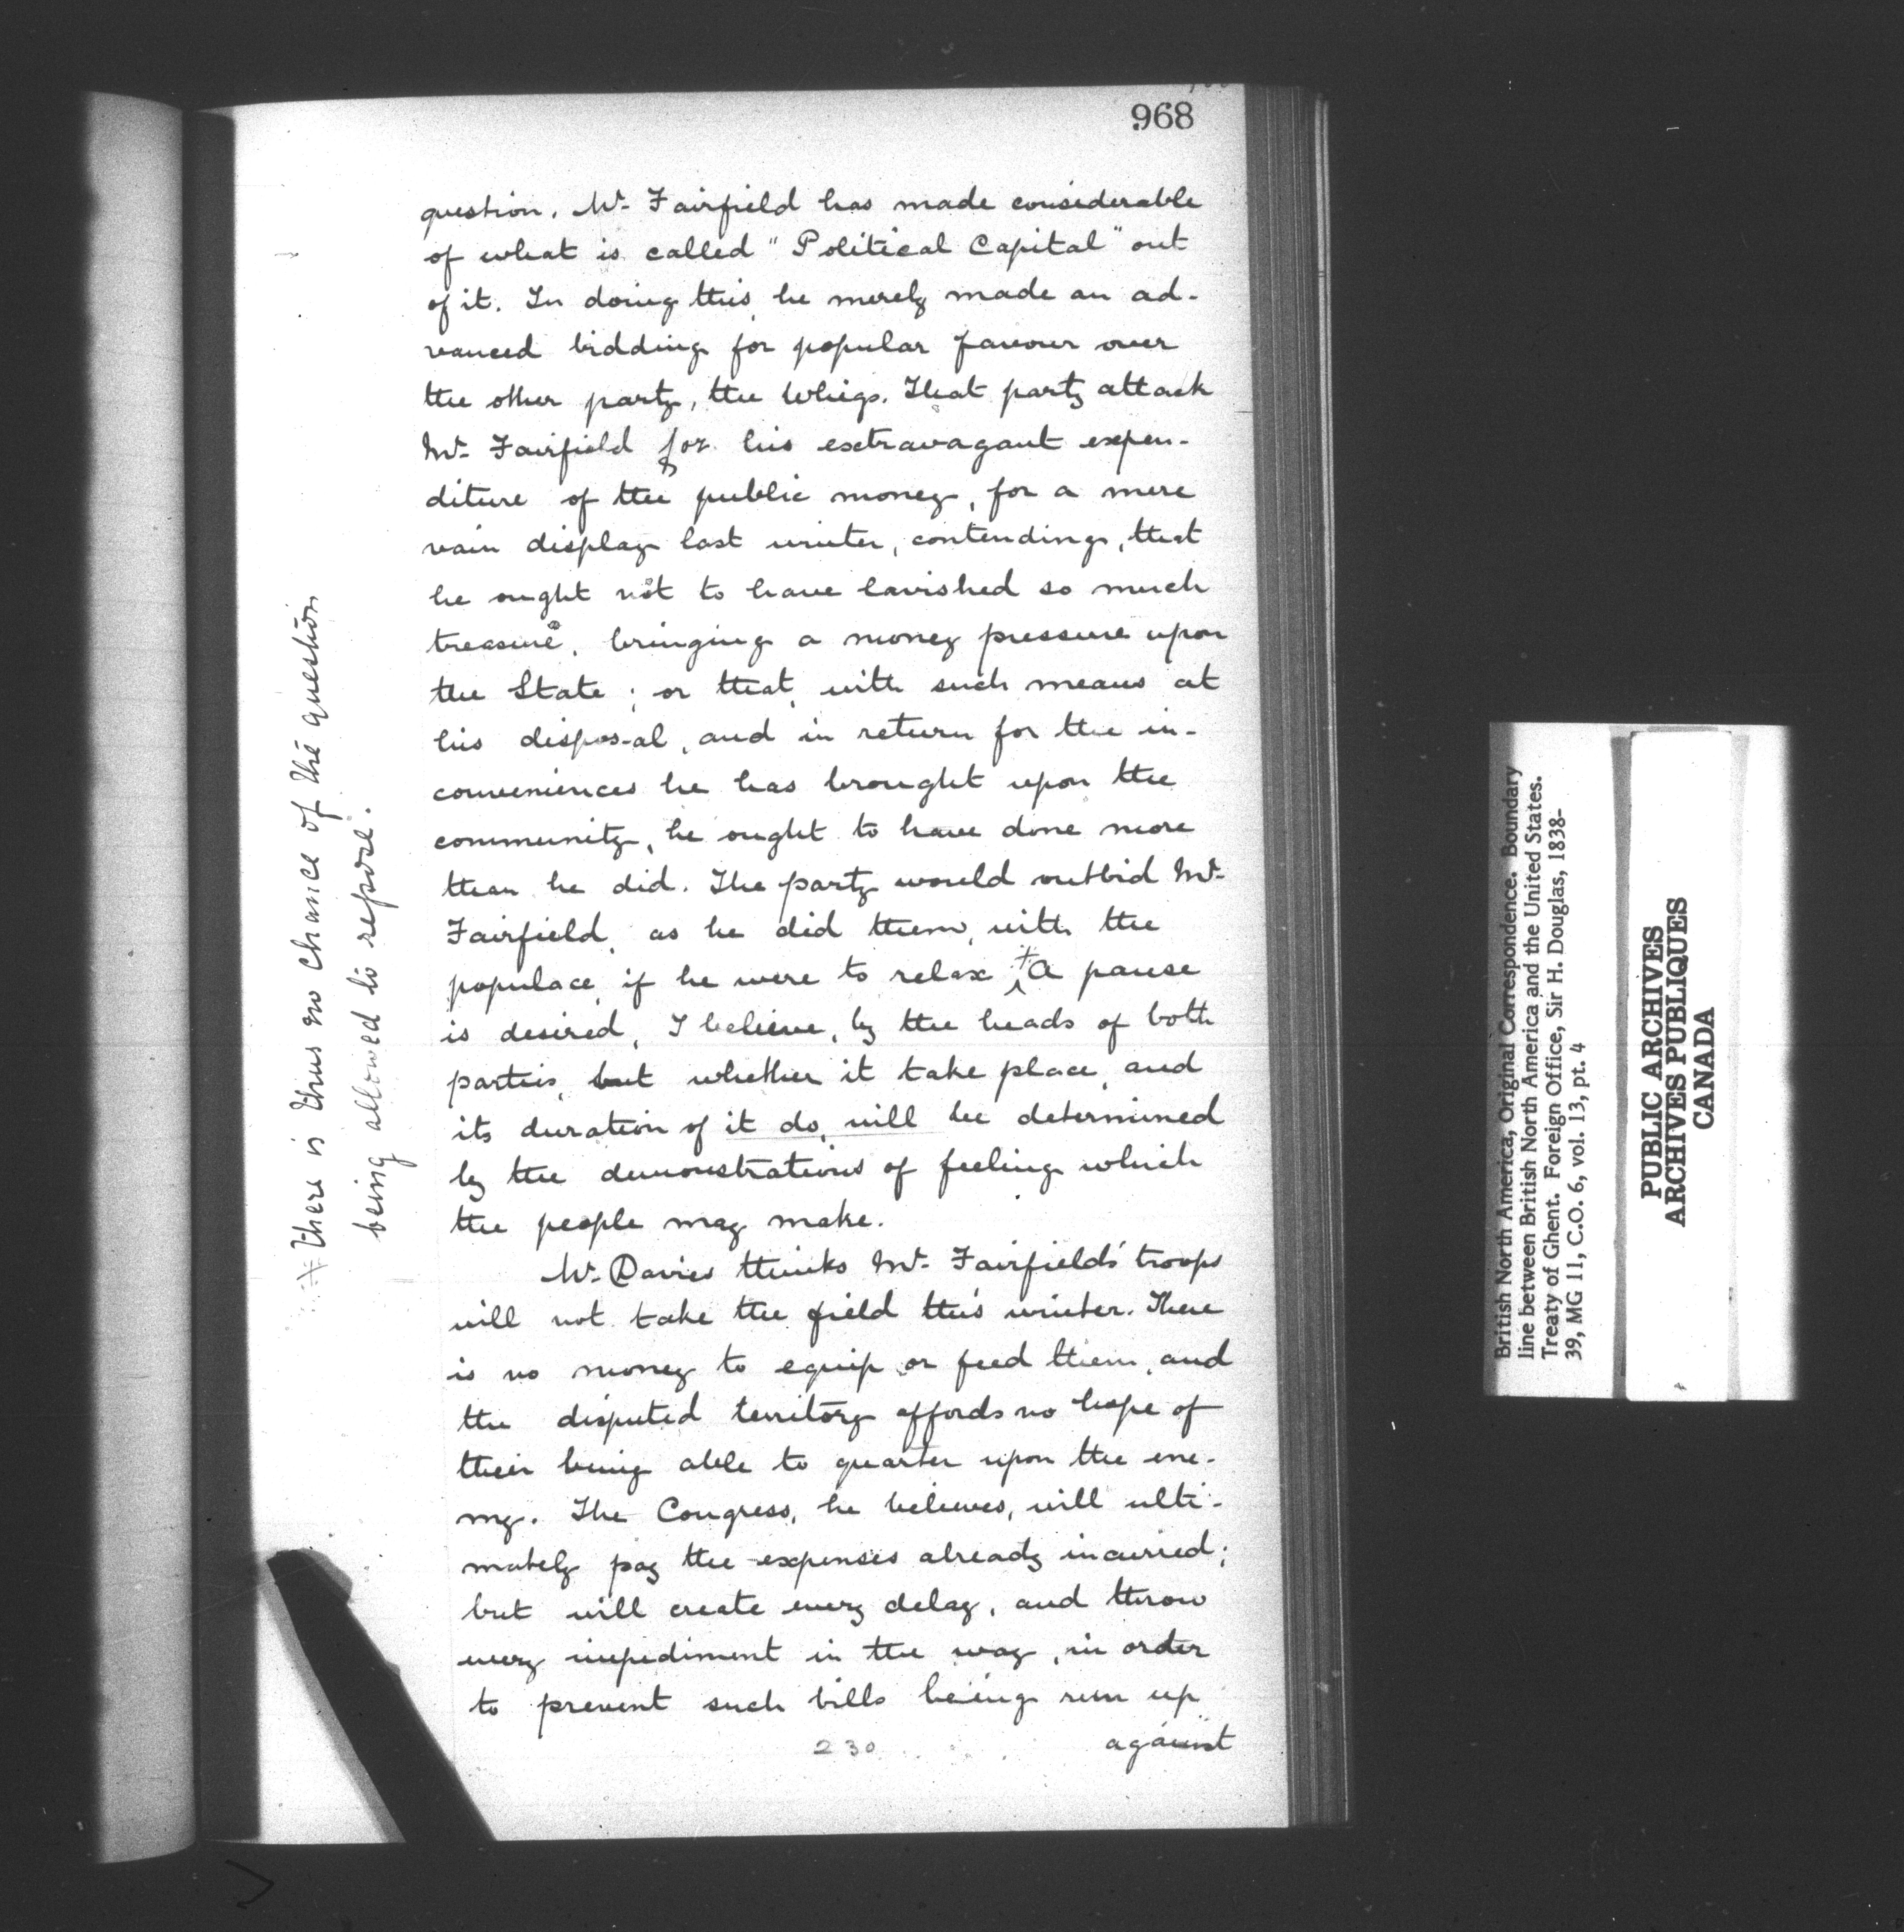 968
question. Mr. Fairfield has made considerable
of what is called "Political Capital" out
of it. In doing this, he merely made an ad-
vanced bidding for popular favour over
the other party, the Whigs. That party attack
Mr. Fairfield for his extravagant expen-
diture of the public money, for a mere
vain display last winter, contending, that
he ought not to have lavished so much
treasure, bringing a money pressure upon
the State; or that, with such means at
his disposal, and in return for the in-
conveniences he has brought upon the
community, he ought to have done more
than he did. The party would outbid Mr.
Fairfield, as he did them, with the
populace, if he were to relax + A pause
is desired, I believe, by the heads of both
parties, but whether it take place, and
its duration of it do, will be determined
by the demonstrations of feeling which
the people may make.
Mr. Davies thinks Mr. Fairfield's troops
will not take the field this winter. There
is no money to equip or feed them, and
the disputed territory affords no hope of
their being able to quarter upon the ene-
my. The Congress, he believes, will ulti-
mately pay the expenses already incurred;
but will create every delay, and throw
every impediment in the way, in order
to prevent such bills being run up
against
230
+ there is thus no chance of the question
being allowed to repose.
British North America, Original Correspondence. Boundary
line between British North America and the United States.
Treaty of Ghent. Foreign Office, Sir H. Douglas, 1838-
39, MG 11, C.O. 6, vol. 13, pt. 4
PUBLIC ARCHIVES
ARCHIVES PUBLIQUES
CANADA